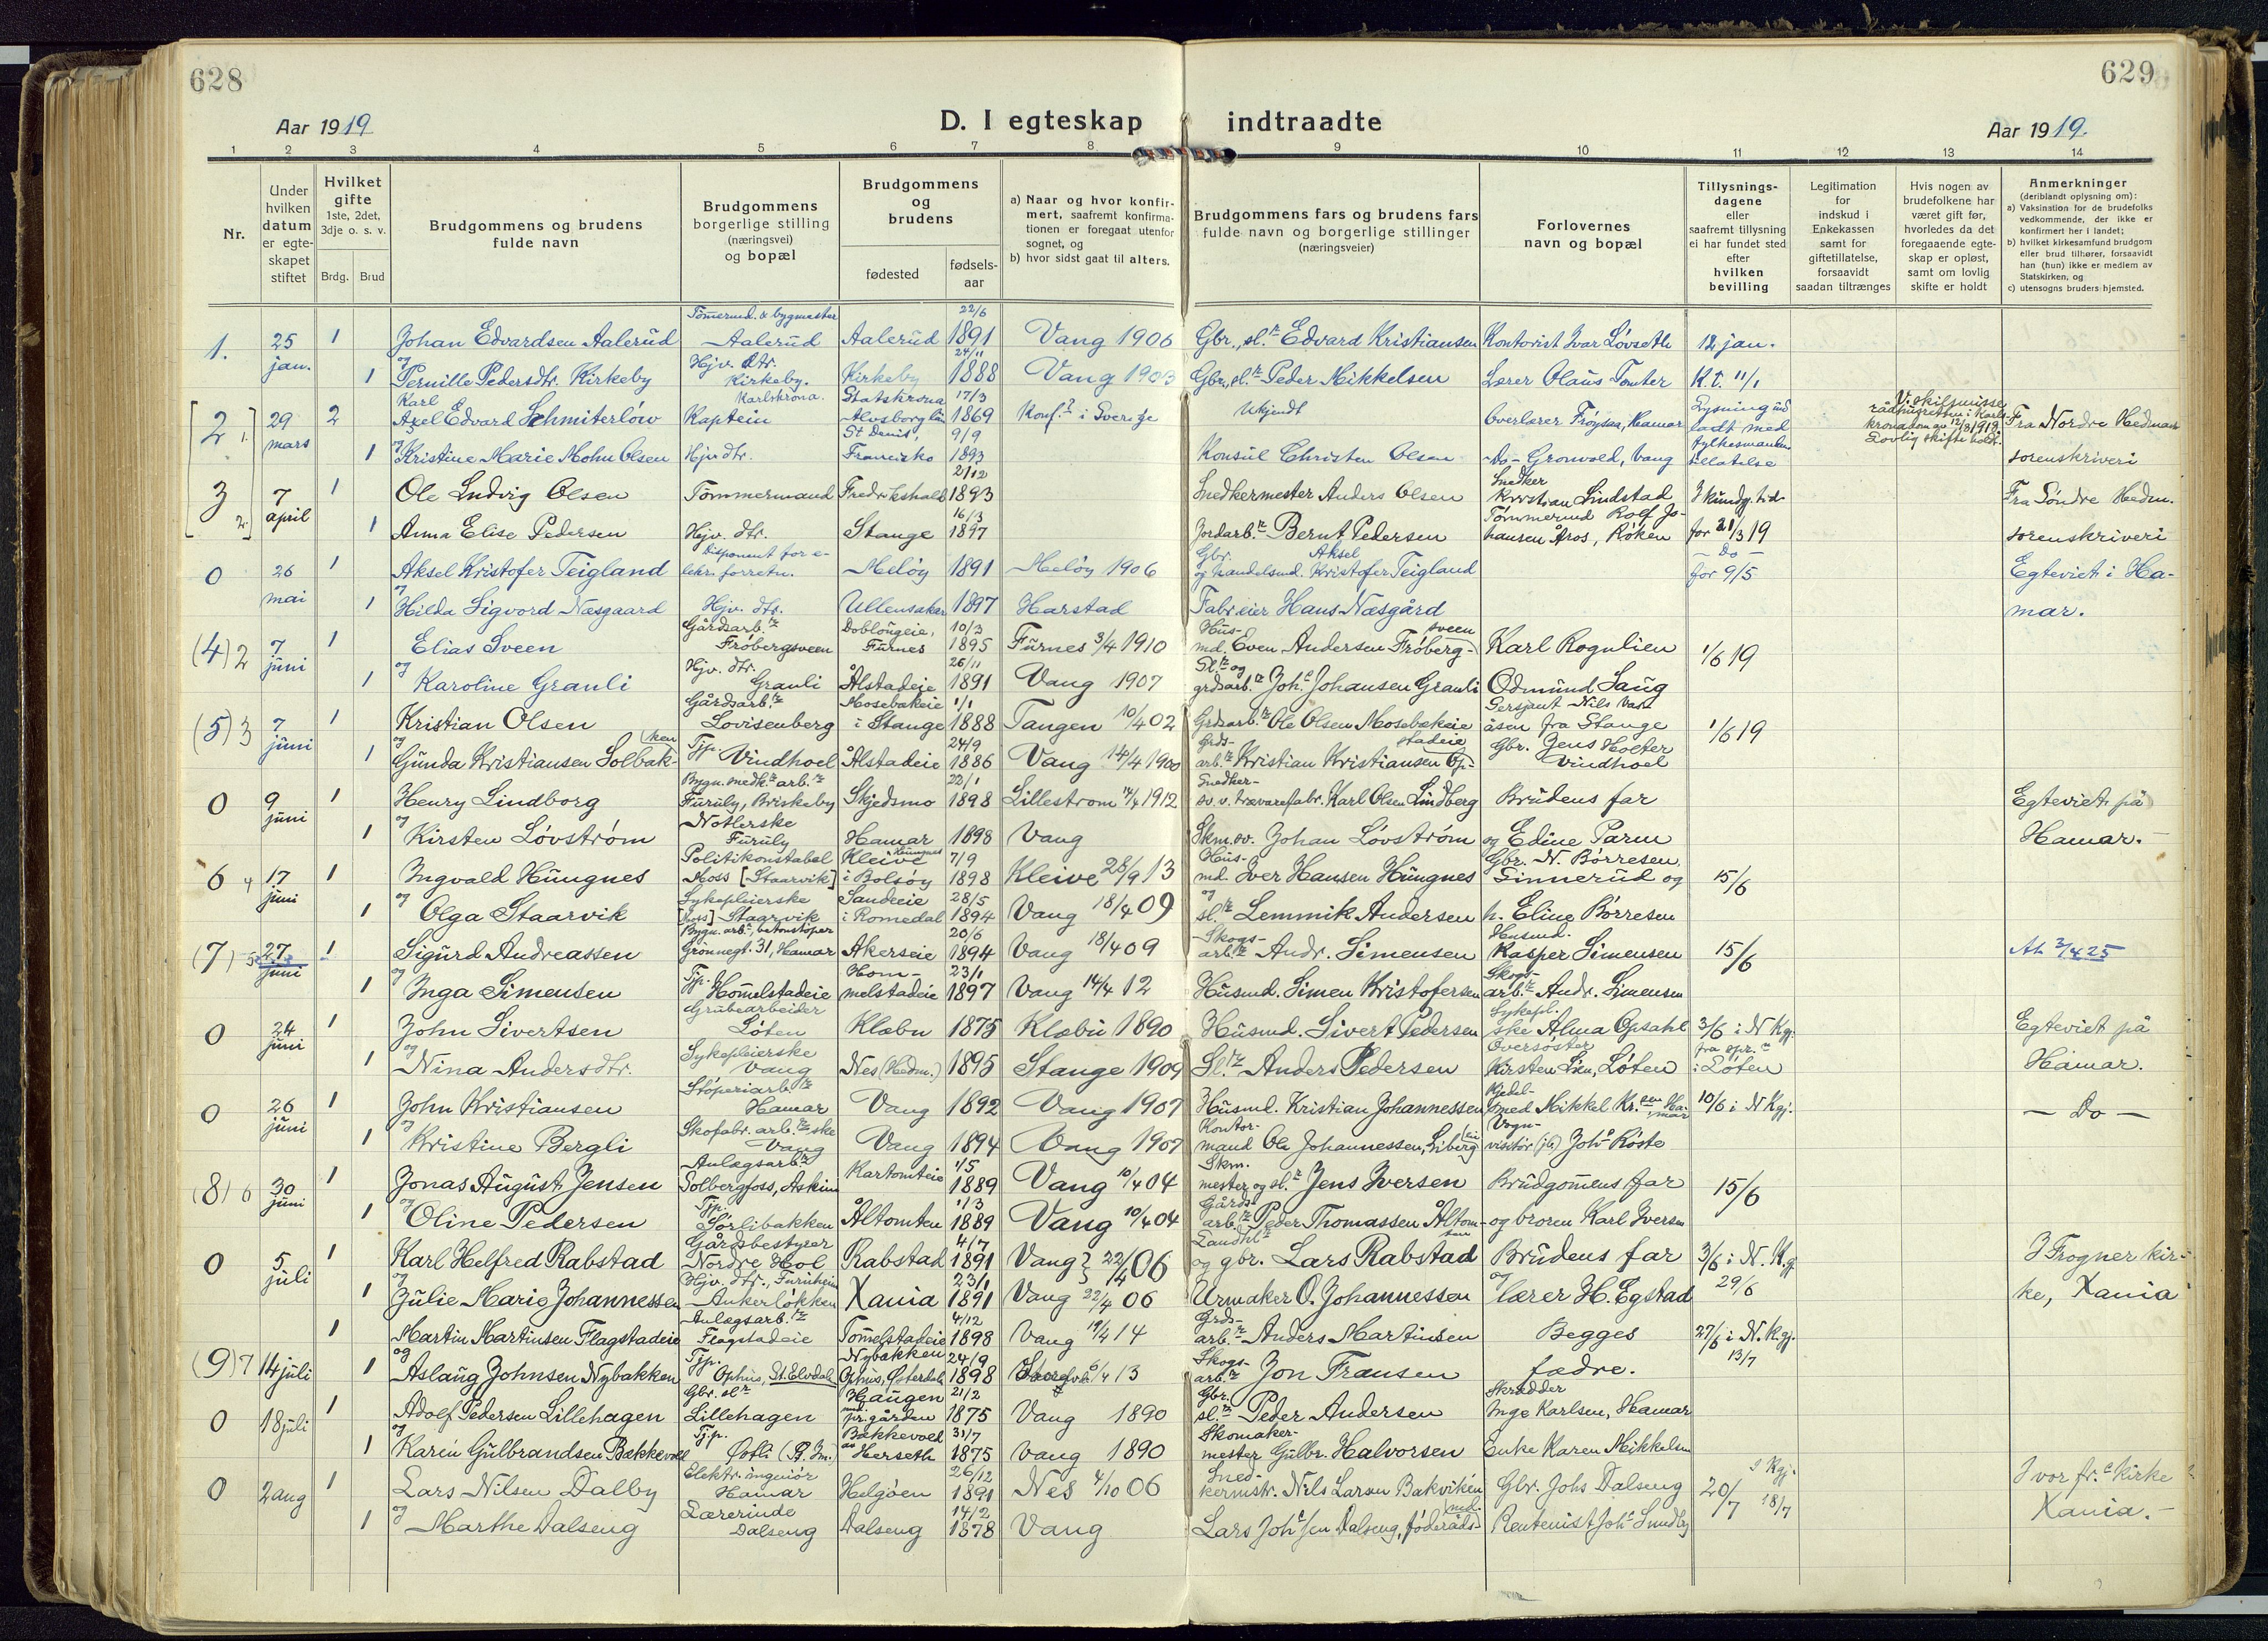 628
629
Aar 1919
D. I egteskap indtraadte
Aar 1919.
1 2 3 4 5 6 7 8 9 10 11 12 13 14
Nr.
Under hvilken datum er egteskapet stiftet
Hvilket gifte 1ste, 2det, 3dje o. s. v.
Brdg. Brud
Brudgommens og brudens fulde navn
Brudgommens borgerlige stilling (næringsvei) og bopæl
Brudgommens og brudens
fødested
fødsels-aar
a) Naar og hvor konfirmert, saafremt konfirmationen er foregaat utenfor sognet, og
b) hvor sidst gaat til alters.
Brudgommens fars og brudens fars fulde navn og borgerlige stillinger (næringsveier)
Forlovernes navn og bopæl
Tillysningsdagene eller saafremt tillysning ei har fundet sted efter hvilken bevilling
Legitimation for indskud i Enkekassen samt for giftetillatelse, forsaavidt saadan tiltrænges
Hvis nogen av brudefolkene har været gift før, hvorledes da det foregaaende egteskap er opløst, samt om lovlig skifte er holdt
Anmerkninger (deriblandt oplysning om):
a) Vaksination for de brudefolks vedkommende, der ikke er konfirmert her i landet;
b) hvilket kirkesamfund brudgom eller brud tilhører, forsaavidt han (hun) ikke er medlem av Statskirken, og
c) utensogns bruders hjemsted.
1. 25 jan. 1 Johan Edvardsen Aalerud Tømmermd. & bygmester Aalerud Aalerud 22/6 1891 Vang 1906 Gbr., sl. Edvard Kristiansen Kontorist Ivar Løvseth 12 jan.
og 1 Pernille Pedersdtr. Kirkeby Hjv. dtr. Kirkeby. Kirkeby 24/11 1888 Vang 1903 Gbr., sl. Peder Mikkelsen Lærer Olaus Tomter K.t. 11/1
[2 1.] 29 mars 2 Karl Axel Edvard Schmiterløw Kaptein Karlskrona. Alvsborg län 17/3 1869 Konf.? i Sverige Ukjendt Overlærer Frøysaa, Hamar Fra Nordre Hedmark
og 1 Kristine Marie Mohn Olsen Hjv. dtr. St Denis, 9/9 1893 Konsul Christen Olsen -Do- Gronvold, Vang sorenskriveri
[3 2.] 7 april 1 Ole Ludvig Olsen Tømmermand Fredrikshald 21/12 1893 Snedkermester Anders Olsen Snedker Kristian Lindstad Fra Søndre Hedm.
1 Anna Elise Pedersen Hjv. dtr. Stange 16/3 1897 Jordarb. Bernt Pedersen Tømmermd Rolf Johansen Åros, Röken for 21/3 19 sorenskriveri
0 26 mai 1 Aksel Kristofer Teigland Disponent for elektr. forretn. Meløy 1891 Meløy 1906 Gbr. og handelsmd. Aksel Kristofer Teigland - Do - for 9/5 Egteviet i Ha-
og 1 Hilda Sigvord Næsgaard Hjv. dtr. Ullensaker 1897 Harstad Fabreier Hans Næsgård mar.
(4) 2 7 juni 1 Elias Sveen Gårdsarb. Frøbergsveen Doblougeie, Furnes 10/3 1895 Furnes 3/4 1910 Husmd. Even Andersen Frøbergsveen Karl Rognlien 1/6 19
og 1 Karoline Granli Hjv. dtr. Granli Ålstadeie 26/11 1891 Vang 1907 Sl. og grdsarb. Joh. Johansen Granli Odmund Saug
(5) 3 7 juni 1 Kristian Olsen Gårdsarb. Lovisenberg Mosebekeie i Stange 1/1 1888 Tangen 10/4 02 Grdsarb. Ole Olsen Mosebekeie Sersjant Nils Varåsen fra Stange 1/6 19
og 1 Gunda Kristiansen Solbakken Tjp. Vindhoel Ålstadeie 24/9 1886 Vang 14/4 1900 Grdsarb. Kristian Kristiansen Opstadeie Gbr. Jens Holter Vindhoel
0 9 juni 1 Henry Lindborg Bygn. snedk. arb. Furuly, Briskeby Skjedsmo 22/1 1898 Lillestrøm 14/4 1912 Snedkersv. v. trævarefabr. Karl Olsen Lindberg Brudens far Egteviet på
og 1 Kirsten Løvstrøm Notlerske Furuly Hamar 1898 Vang Skm.sv. Johan Løvstrøm og Edine Parm Hamar.
6 4 17 juni 1 Ingvald Hungnes Politikonstabel Moss [Staarvik] Kleive Hungnes i Bolsøy 7/9 1898 Kleive 28/9 13 Husmd. Iver Hansen Hungnes Gbr. N. Børresen, Sinnerud og 15/6
og 1 Olga Staarvik Sykepleierske [Moss] Staarvik Sandeeie i Romedal 28/5 1894 Vang 18/4 09 og sl. Lemmik Andersen h. Eline Børresen
(7) 5 27 juni 1 Sigurd Andreassen Bygn. arb., betonstøper Grønnegt. 31, Hamar Akerseie 20/6 1894 Vang 18/4 09 Skogsarb. Andr. Simensen Husmd. Kasper Simensen 15/6 At. 3/4 25
og 1 Inga Simensen Tjp. Hommelstadeie Hommelstadeie 23/1 1897 Vang 14/4 12 Husmd. Simen Kristofersen Skogsarb. Andr. Simensen
0 24 juni 1 John Sivertsen Grubearbeider Løten Klæbu 1875 Klæbu 1890 Husmd. Sivert Pedersen Sykepl.ske Alma Opsahl 3/6 i N Kgj. Egteviet på
og 1 Nina Andersdtr. Sykepleierske Vang Nes (Hedm.) 1895 Stange 1909 Sl. Anders Pedersen Oversøster Kirsten Lien, Løten i Løten Hamar.
0 26 juni 1 John Kristiansen Støperiarb. Hamar Vang 1892 Vang 1907 Husmd. Kristian Johannessen Kjedelsmed Mikkel Kr.sen Hamar 10/6 i N Kgj. - Do -
og 1 Kristine Bergli Skofabr. arb.ske Vang Vang 1894 Vang 1907 Kontormand Ole Johannessen, Vognvisitør Joh. Røste
(8) 6 30 juni 1 Jonas August Jensen Anlægsarb. Solbergfoss, Askim Kartomteie 1/5 1889 Vang 10/4 04 Skm.mester og sl. Jens Iversen Brudgommens far 15/6
og 1 Oline Pedersen Tjp. Sørlibakken Åltomten 1/3 1889 Vang 10/4 04 Gårdsarb. Peder Thomassen Åltomten og broren Karl Iversen
0 5 juli 1 Karl Helfred Rabstad Gårdsbestyrer Nordre Hol Rabstad 4/7 1891 Vang } 22/4 06 Landhl. og gbr. Lars Rabstad Brudens far 3/6 i N. Kg. I Frogner kir-
og 1 Julie Marie Johannessen Hjv. dtr., Furuheim Ankerløkken Xania 23/1 1891 Vang 22/4 06 Urmaker O. Johannessen og lærer H. Egstad 29/6 ke, Xania
1 Martin Martinsen Flagstadeie Anlægsarb. Flagstadeie Tommelstadeie 4/12 1898 Vang 19/4 14 Grdsarb. Anders Martinsen Begges 27/6 i N. Kgj.
(9) 7 14 juli og 1 Aslaug Johnsen Nybakken Tjp. Ophus, St. Elvdal Nybakken Ophus, Østerdalen 24/9 1898 6/4 13 Skogsarb. Jon Fransen fædre. 13/7
0 18 juli 1 Adolf Pedersen Lillehagen Gbr. sl. Lillehagen Haugen pr.gården 21/2 1875 Vang 1890 Gbr. sl. Peder Andersen Skrædder Inge Karlsen, Hamar
og 1 Karen Gulbrandsen Bakkevold Tjp. Østli Bakkevold Herseth 31/7 1875 Vang 1890 Skomakermester Gulbr. Halvorsen Enke Karen Mikkelsen
0 2 aug 1 Lars Nilsen Dalby Elektr. ingeniør Hamar Helgøen 26/12 1891 Nes 4/10 06 Snedkermstr. Nils Larsen Bakviken Gbr. Johs Dalseng 20/7 18/7 I vor fr. kirke
og 1 Marthe Dalseng Lærerinde Dalseng Dalseng 14/2 1878 Vang Lars Joh.sen Dalseng, føderådsmd. Rentenist Joh. Smedby Xania.